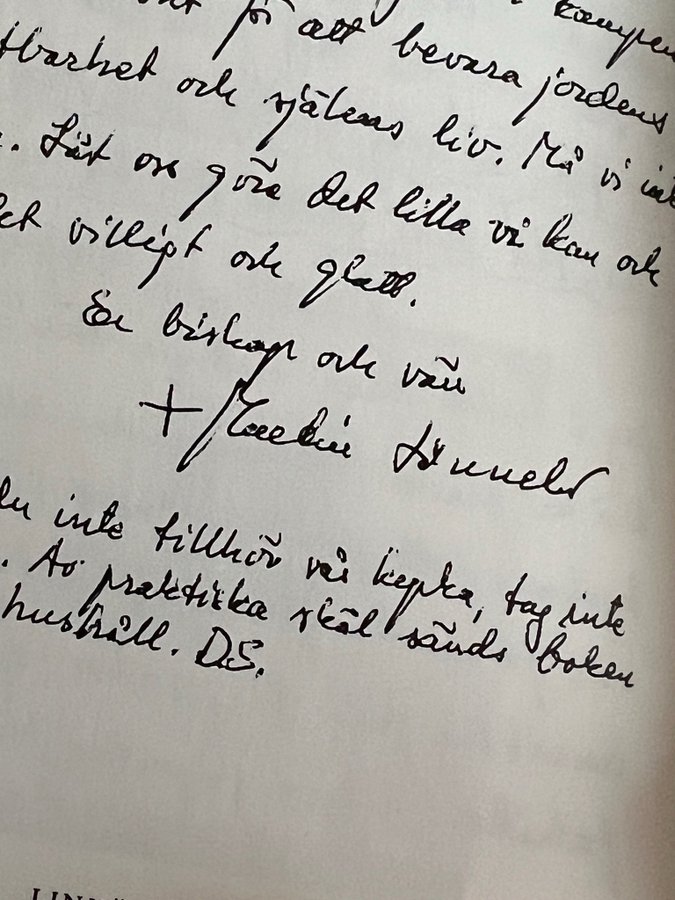 på att bevara jordens
tbarhet och själens liv. Må vi inte
. Låt oss göra det lilla vi kan och
et villigt och glatt.
Er biskop och vän
+ Martin Lönnebo
du inte tillhör vår kyrka, tag inte
. Av praktiska skäl sänds boken
hushåll. D.S.